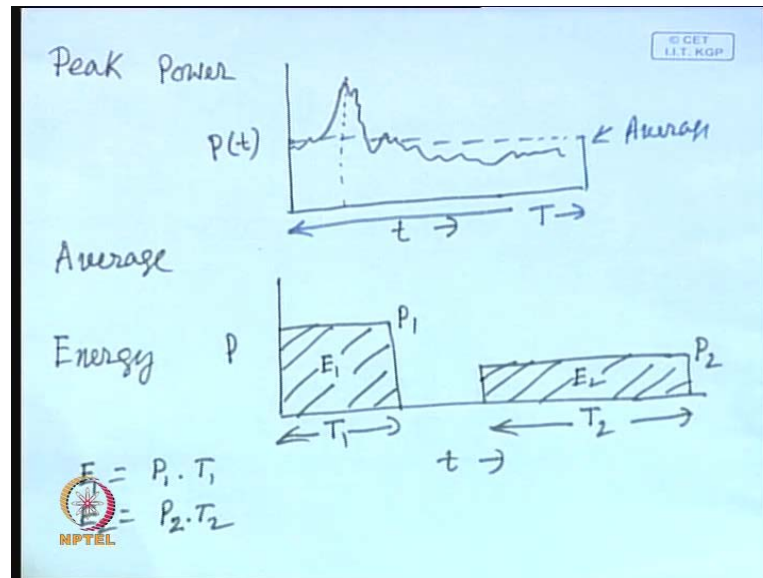 © CET
I.I.T. KGP
Peak Power
P(t)
← Average
t →
T →
Average
Energy
P
P1
E1
P2
E2
← T1 →
← T2 →
t →
E1 = P1 . T1
E2 = P2 . T2
NPTEL